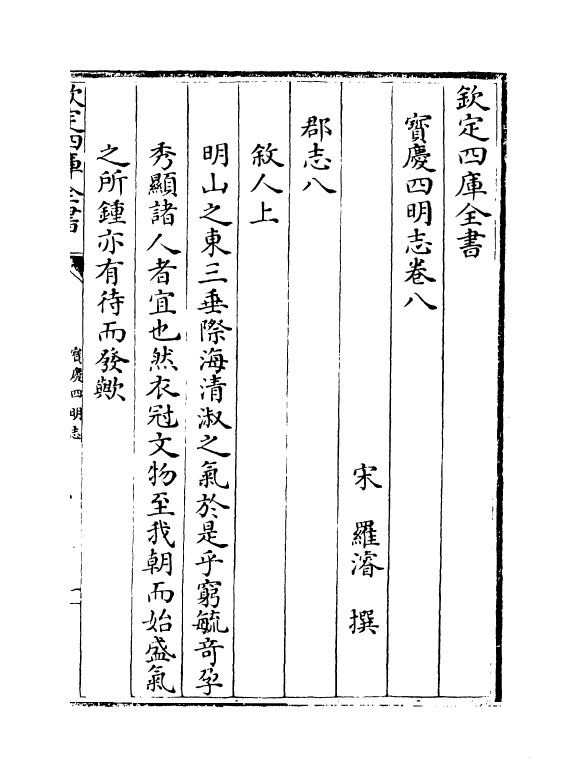 欽定四庫全書
寳慶四明志卷八
宋　羅濬　撰
郡志八
敘人上
明山之東三垂際海清淑之氣於是乎窮毓竒孕
秀顯諸人者宜也然衣冠文物至我朝而始盛氣
之所鍾亦有待而發歟
欽定四庫全書
寳慶四明志